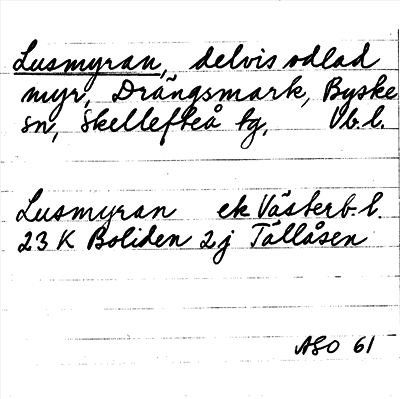 Lusmyran, delvis odlad
myr, Drängsmark, Byske
sn, Skellefteå tg, Vb. l.
Lusmyran ek Västerb. l.
23 K Boliden 2j Tällåsen
ASO 61